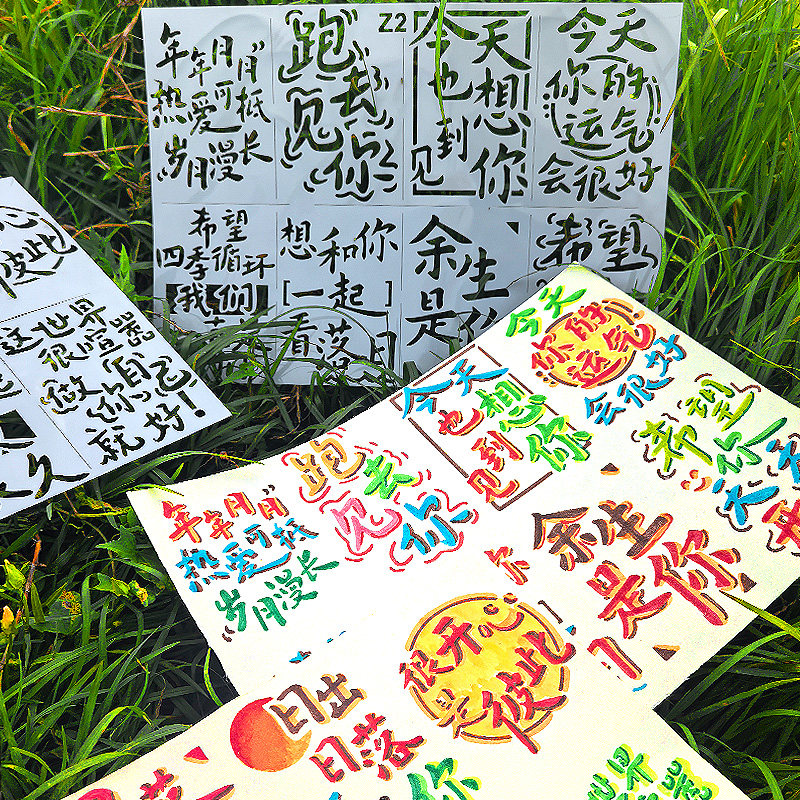 年年月月
热爱可抵
岁月漫长
跑
去
见
你
Z2
今天
也想
到你
见
今天
你的
运气
会很好
希望
四季循环
我们
想和你
[一起]
看落日
余生
是你
希望
彼此
这世界
很喧嚣
做你自己
就好!
久
今天
你的
运气
会很好
今天
也想
到你
见
希望
你
天天
开
跑
去
见
你
年年月月
热爱可抵
岁月漫长
余生
是你
很开心
是彼此
日出
日落
你
世界